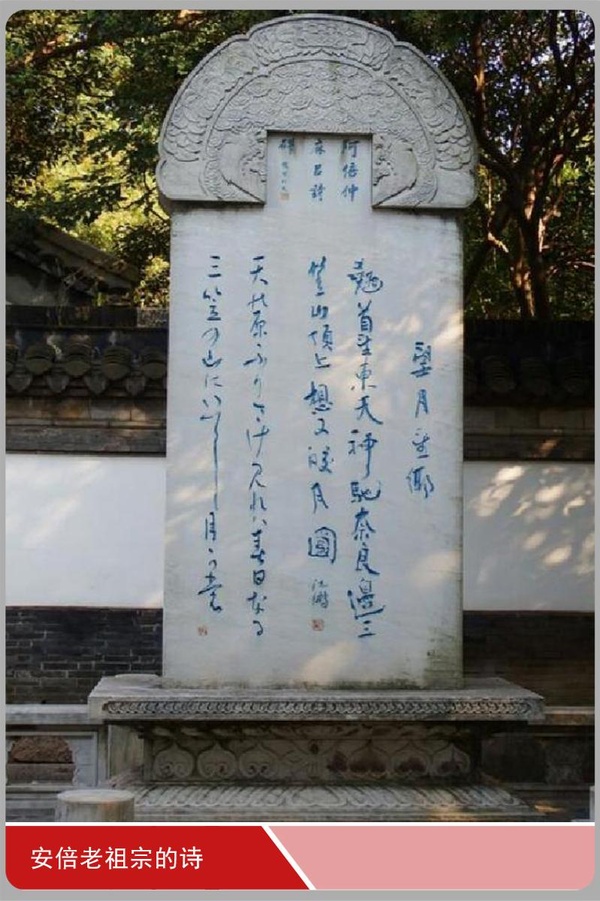 阿倍仲
麻呂詩
碑
望月望鄉
翹首望東天神馳奈良邊三
笠山頂上想又皎月圓
天の原ふりさけ見れハ春日なる
三笠の山にいてし月可裳
安倍老祖宗的诗